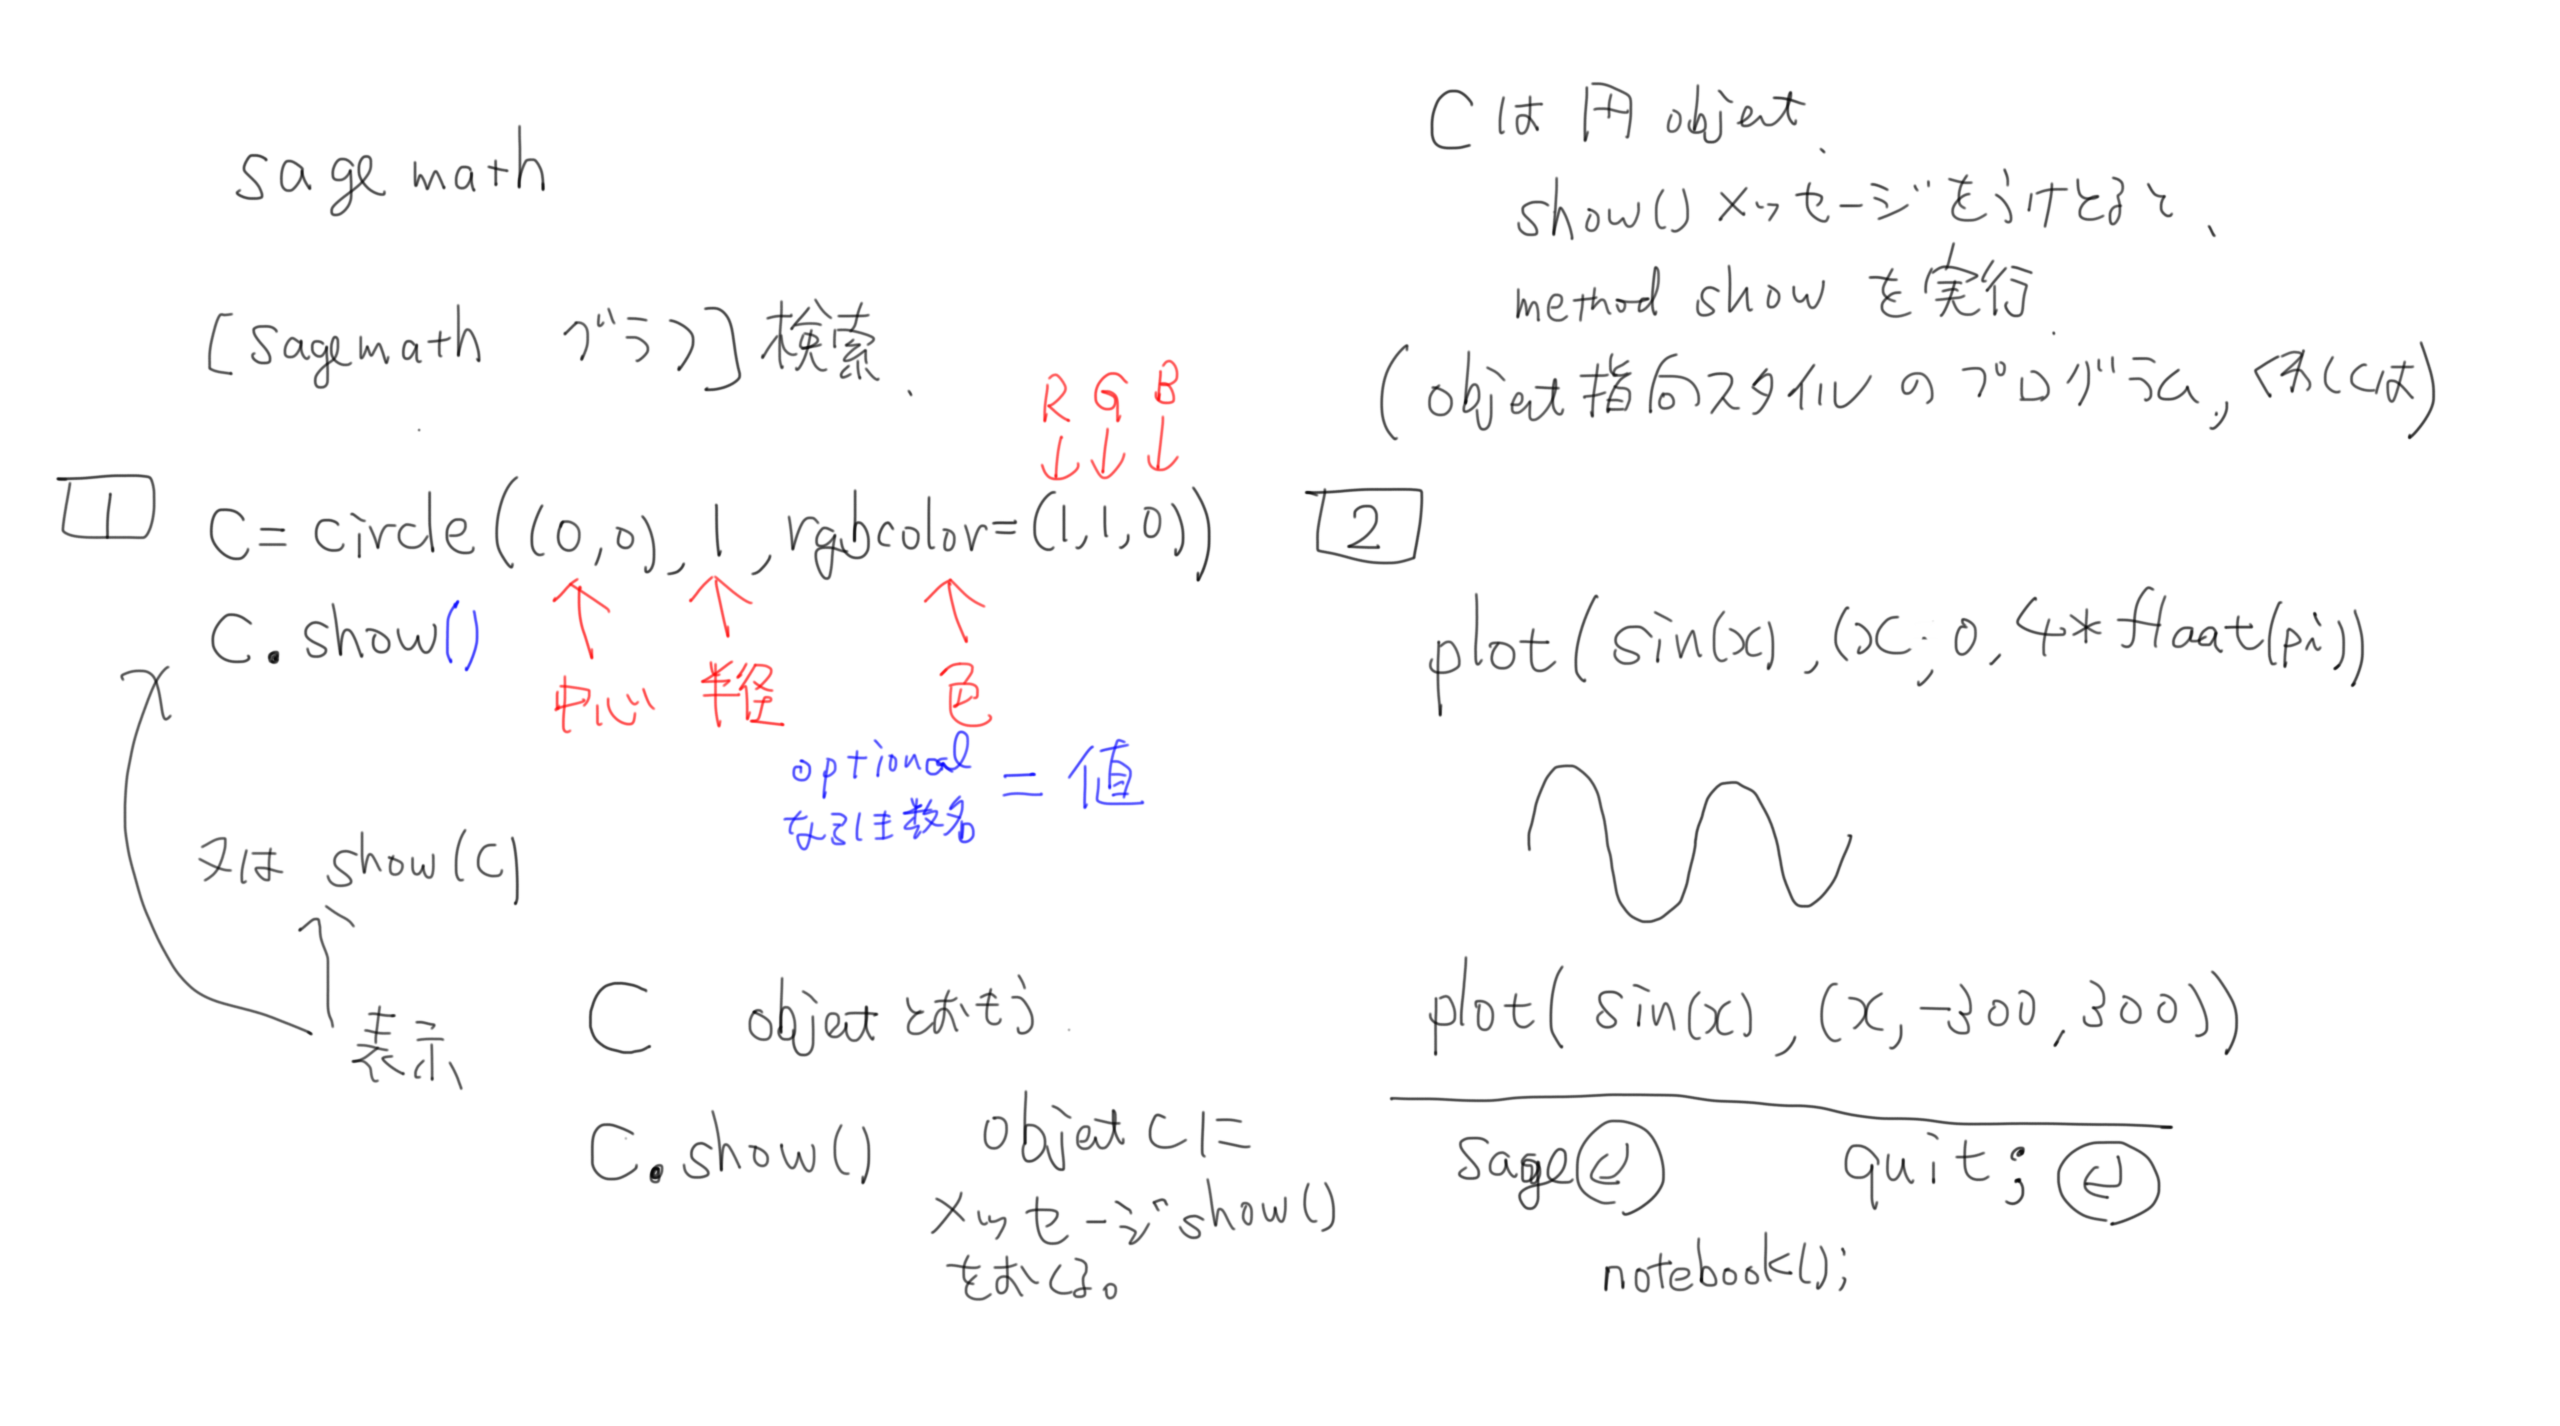 sagemath
[sagemath グラフ]検索.
R G B
1
C=circle((0,0),1,rgbcolor=(1,1,0))
C.show()
中心 半径 色
optional
な引き数名
=値
又は show(C)
表示
C object とおもう.
C.show() object Cに
メッセージ show()
をおくる。
Cは円object.
show()メッセージをうけとると、
method show を実行.
(object 指向スタイルのプログラム, くわしくは)
2
plot(sin(x),(x,0,4*float(pi))
plot(sin(x),(x,-300,300))
sage quit;
notebook();